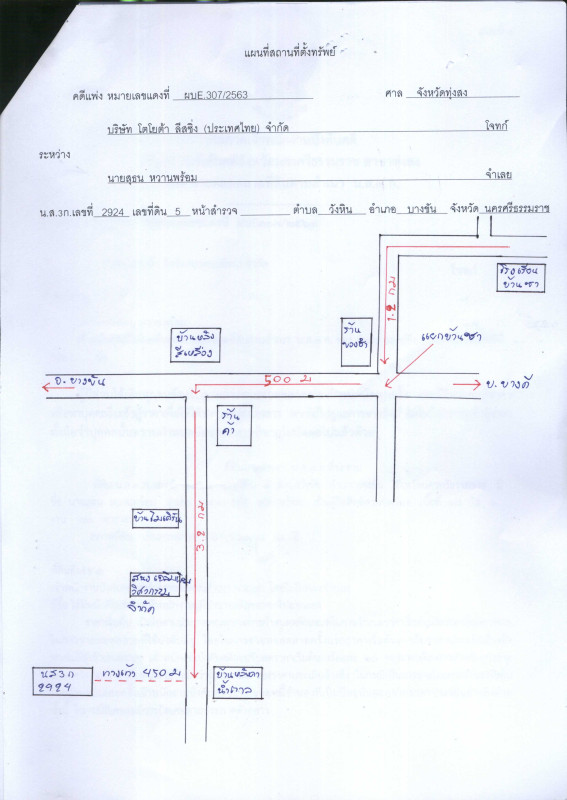 แผนที่สถานที่ตั้งทรัพย์
คดีแพ่ง หมายเลขแดงที่ ผบE.307/2563 ศาล จังหวัดทุ่งสง
บริษัท โตโยต้า ลีสซิ่ง (ประเทศไทย) จำกัด โจทก์
ระหว่าง
นายสุธน หวานพร้อม จำเลย
น.ส.3ก.เลขที่ 2924 เลขที่ดิน 5 หน้าสำรวจ ตำบล วังหิน อำเภอ บางขัน จังหวัด นครศรีธรรมราช
โรงเรียน
บ้านซา
1.2 กม
ร้าน
ของชำ
แยกบ้านซา
บ้านหลัง
สีเหลือง
อ.บางขัน
500 ม
บ.บางดี
ร้าน
ค้า
3.2 กม
บ้านไม้
จำกัด
นส3ก
2924
ทางเข้า 450 ม
บ้านหลังคา
น้ำตาล